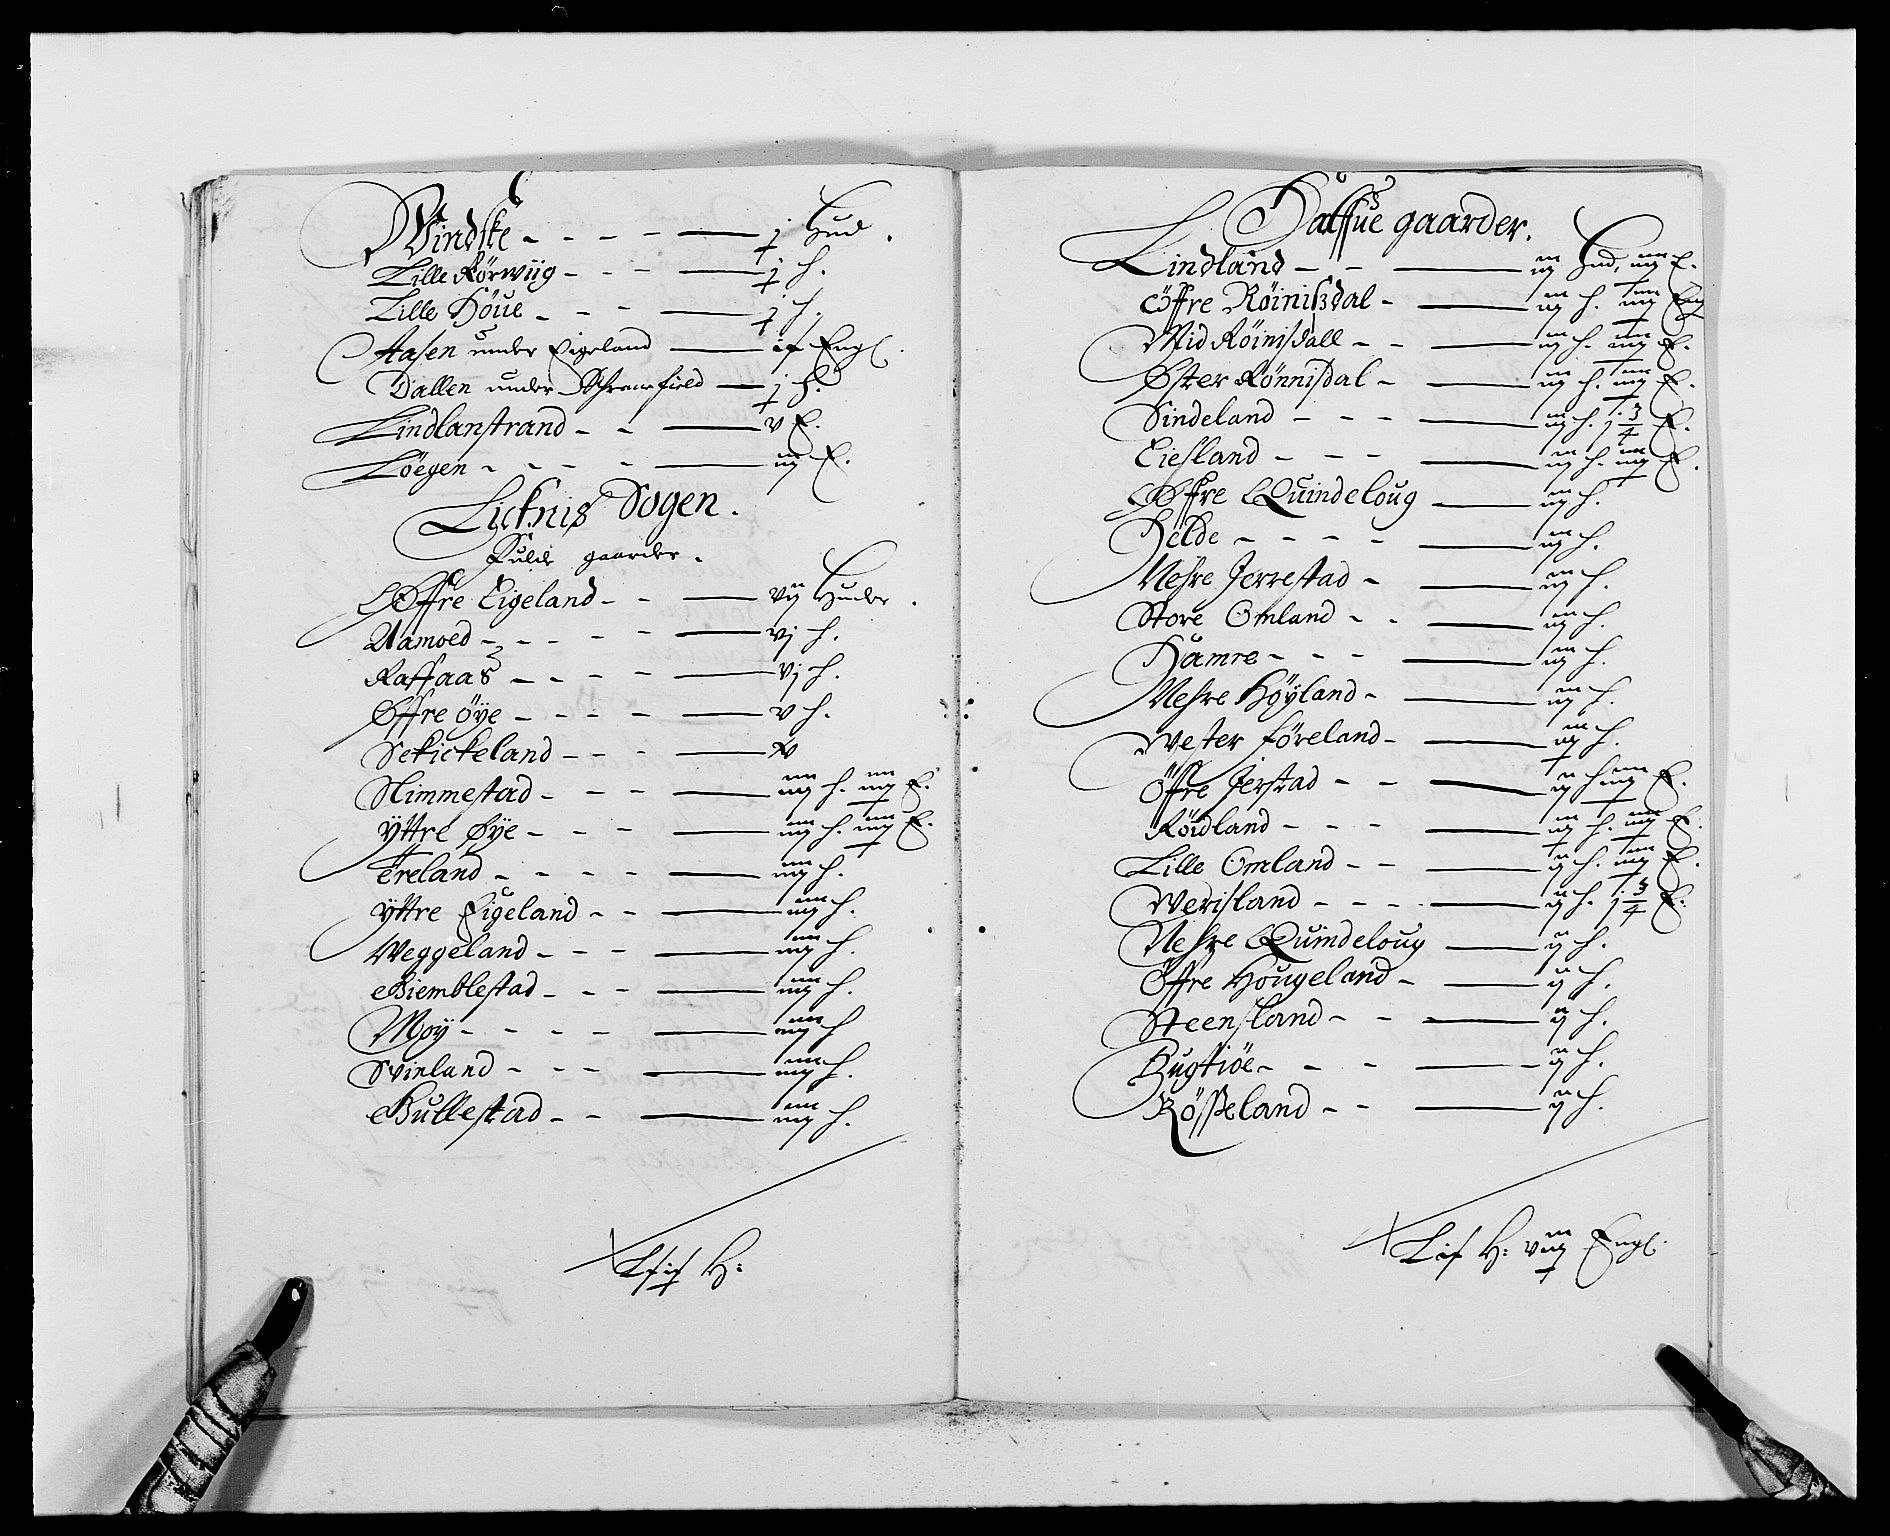 Windske - - - - — j Hud.
Lille Rörwiig - - - — j h.
Lille Höue - - - — j h.
Aasen under Eigeland — Engl.
Dallen under — j h.
Lindlanstrand - - — v E.
Löegen - - - - — iij E.
Lycknis Sogen.
Fulde gaarder.
Øffre Eigeland - - — vij Huder.
Aamoed - - - - — vj h.
Raffaas - - - - — vj h.
Øffre öye - - - - — v h.
Sekickeland - - - — v
Nimmestad - - - — iiij h. iiij E.
Yttre Øye - - - — iiij h. iiij E.
Treland - - - - — iiij h.
Yttre Eigeland - - — iiij h.
Weggeland - - - — iiij h.
Giemblestad - - - — iiij h.
Moy - - - - — iiij h
Svinland - - - — iiij h.
Gullestad - - — iiij h.
H:
Halffue gaarder.
Lindland - - — iij Hud, iiij E.
Öffre Röinißdal - — iij h. iiij Eng
Mid Röinisdall - - — iij h. iiij E.
Øster Rönnisdal - — iij h. iiij E.
Sindeland - - - — iij h. 1 3/4 E.
Eiesland - - - — iij h. iiij E.
Øffre Quindeloug — iij h.
Helde - - - - — iij h.
Nehre Jerrestad - — iij h.
Store Omland - - — iij h.
Hamre - - - — iij h.
Nehre Höyland - — iij h.
Wester föreland - — iij h.
Öffre Jerstad - - — ij h iiij E.
Röidland - - - — iij h. iiij E.
Lille Omland - - — ij h. iiij E.
Werisland - - - - — ij h. 1 3/4 E.
Nehre Quindeloug — ij h.
Öffre Hougeland - — ij h.
Steensland - - — ij h.
Bugtiöe - - - — ij h.
Rösseland - - — ij h.
H: viij Engl.